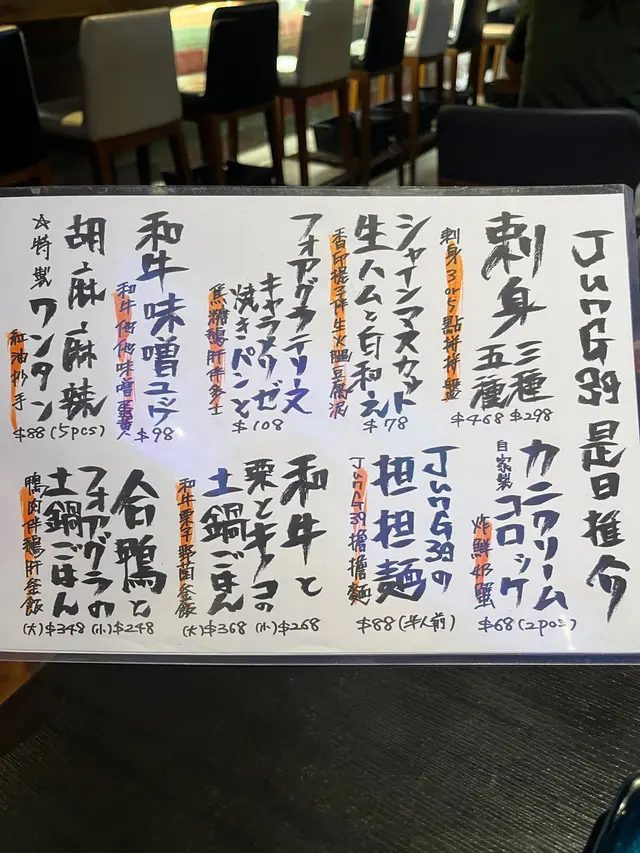 JunG39 是日推介
刺身 三種 $298
五種 $468
刺身3 or 5 點拼拼盤
シャインマスカット
生ハムと白和え
$78
香印提子伴生火腿豆腐泥
フォアグラテリーヌ
キャラメリゼ
焼きパンと
$108
焦糖鵝肝伴多士
和牛 味噌ユッケ
$98
和牛他他味噌蛋黃
胡麻麻辣
☆特製 ワンタン
紅油抄手
$88 (5pcs)
カニクリーム
自家製 コロッケ
炸鮮奶蟹
$68 (2pcs)
JunG39の
担担麺
JunG39擔擔麵
$88 (半人前)
和牛と
栗とキノコの
土鍋ごはん
和牛栗子野菌釜飯
(大) $368 (小) $268
合鴨と
フォアグラの
土鍋ごはん
鴨肉伴鵝肝釜飯
(大) $348 (小) $248